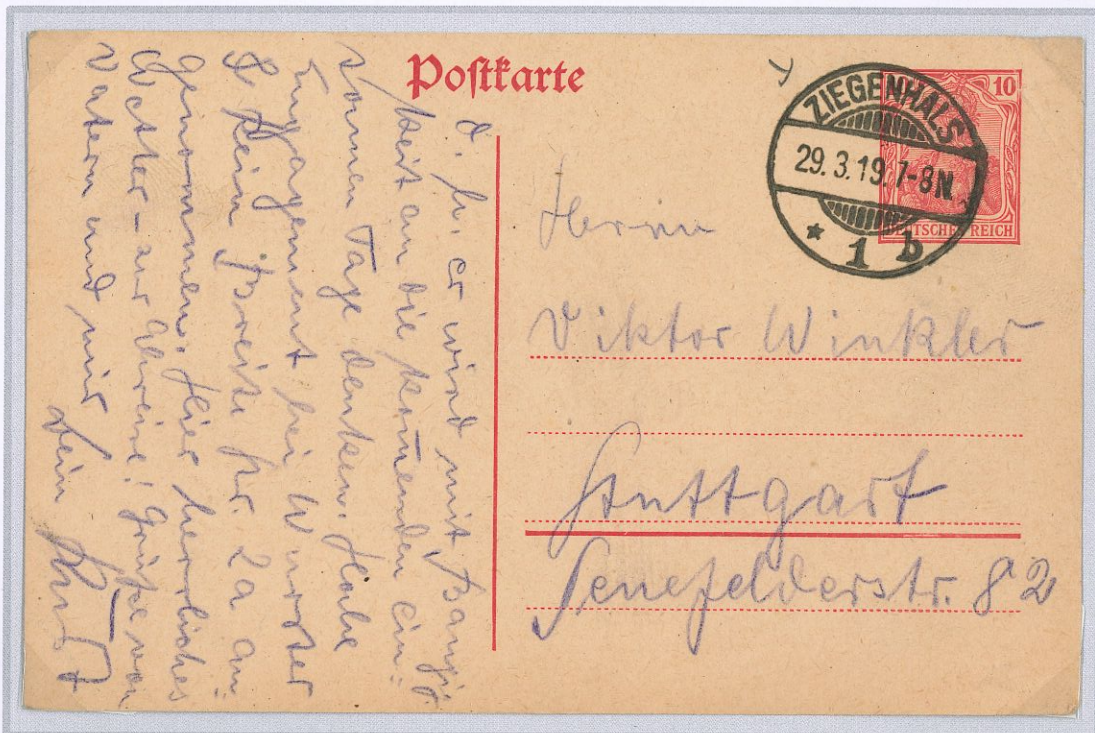 Postkarte
ZIEGENHALS
29. 3. 19. 7-8 N.
* 1 b
10
DEUTSCHES REICH
Herrn
Viktor Winkler
Stuttgart
Senefelderstr. 82
d. h. er wird mit
keit an die kom̄enden ein-
samen Tage denken. Habe
Engagement bei Wurster
& Dein Breite hr. 2a an-
genommen. Hier herrliches
Wetter - nur
Vatern und mir
Dein